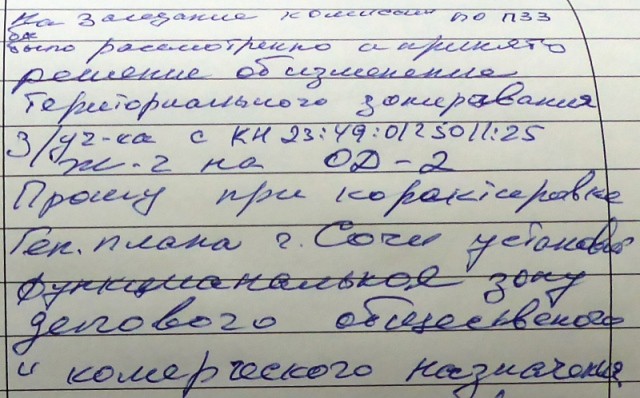 На заседание комиссии по ПЗЗ
было рассмотренно и принято
решение об изменение
Териториального зонирования
З/уч-ка с КН 23:49:0125011:25
Ж-2 на ОД-2
Прошу при корактировке
Ген. плана г. Сочи установ
функциональноя зону
делового общественого
и комерческого назначения